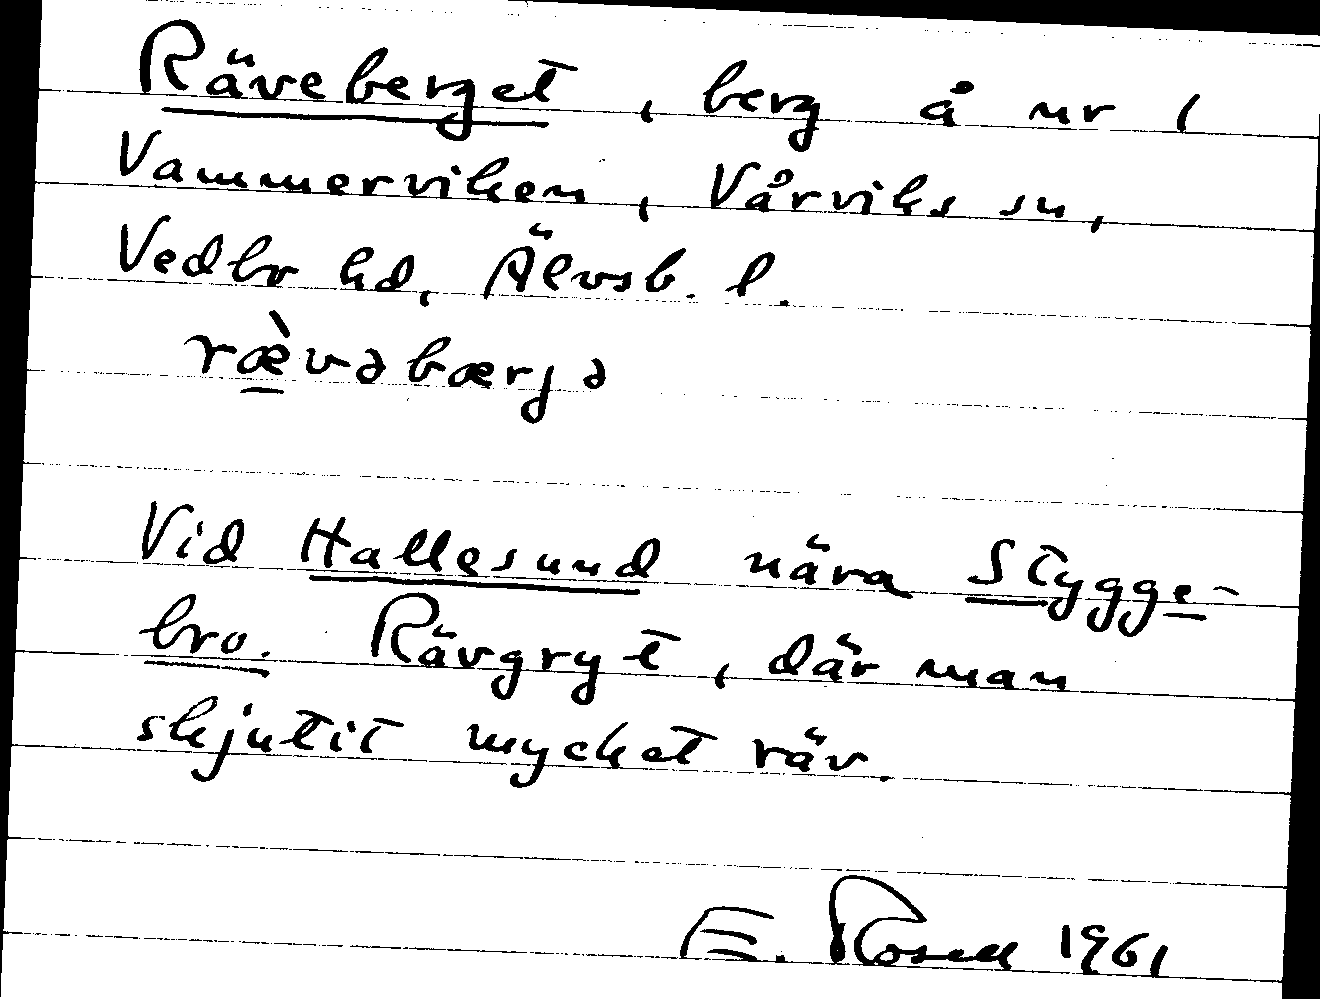 Räveberget, berg å nr 1
Vammerviken, Vårviks sn,
Vedbr hd, Älvsb. l.
ræ̀vəbærjə
Vid Hallesund nära Stygge-
bro. Rävgryt, där man
skjutit mycket räv.
E. Rosell 1961